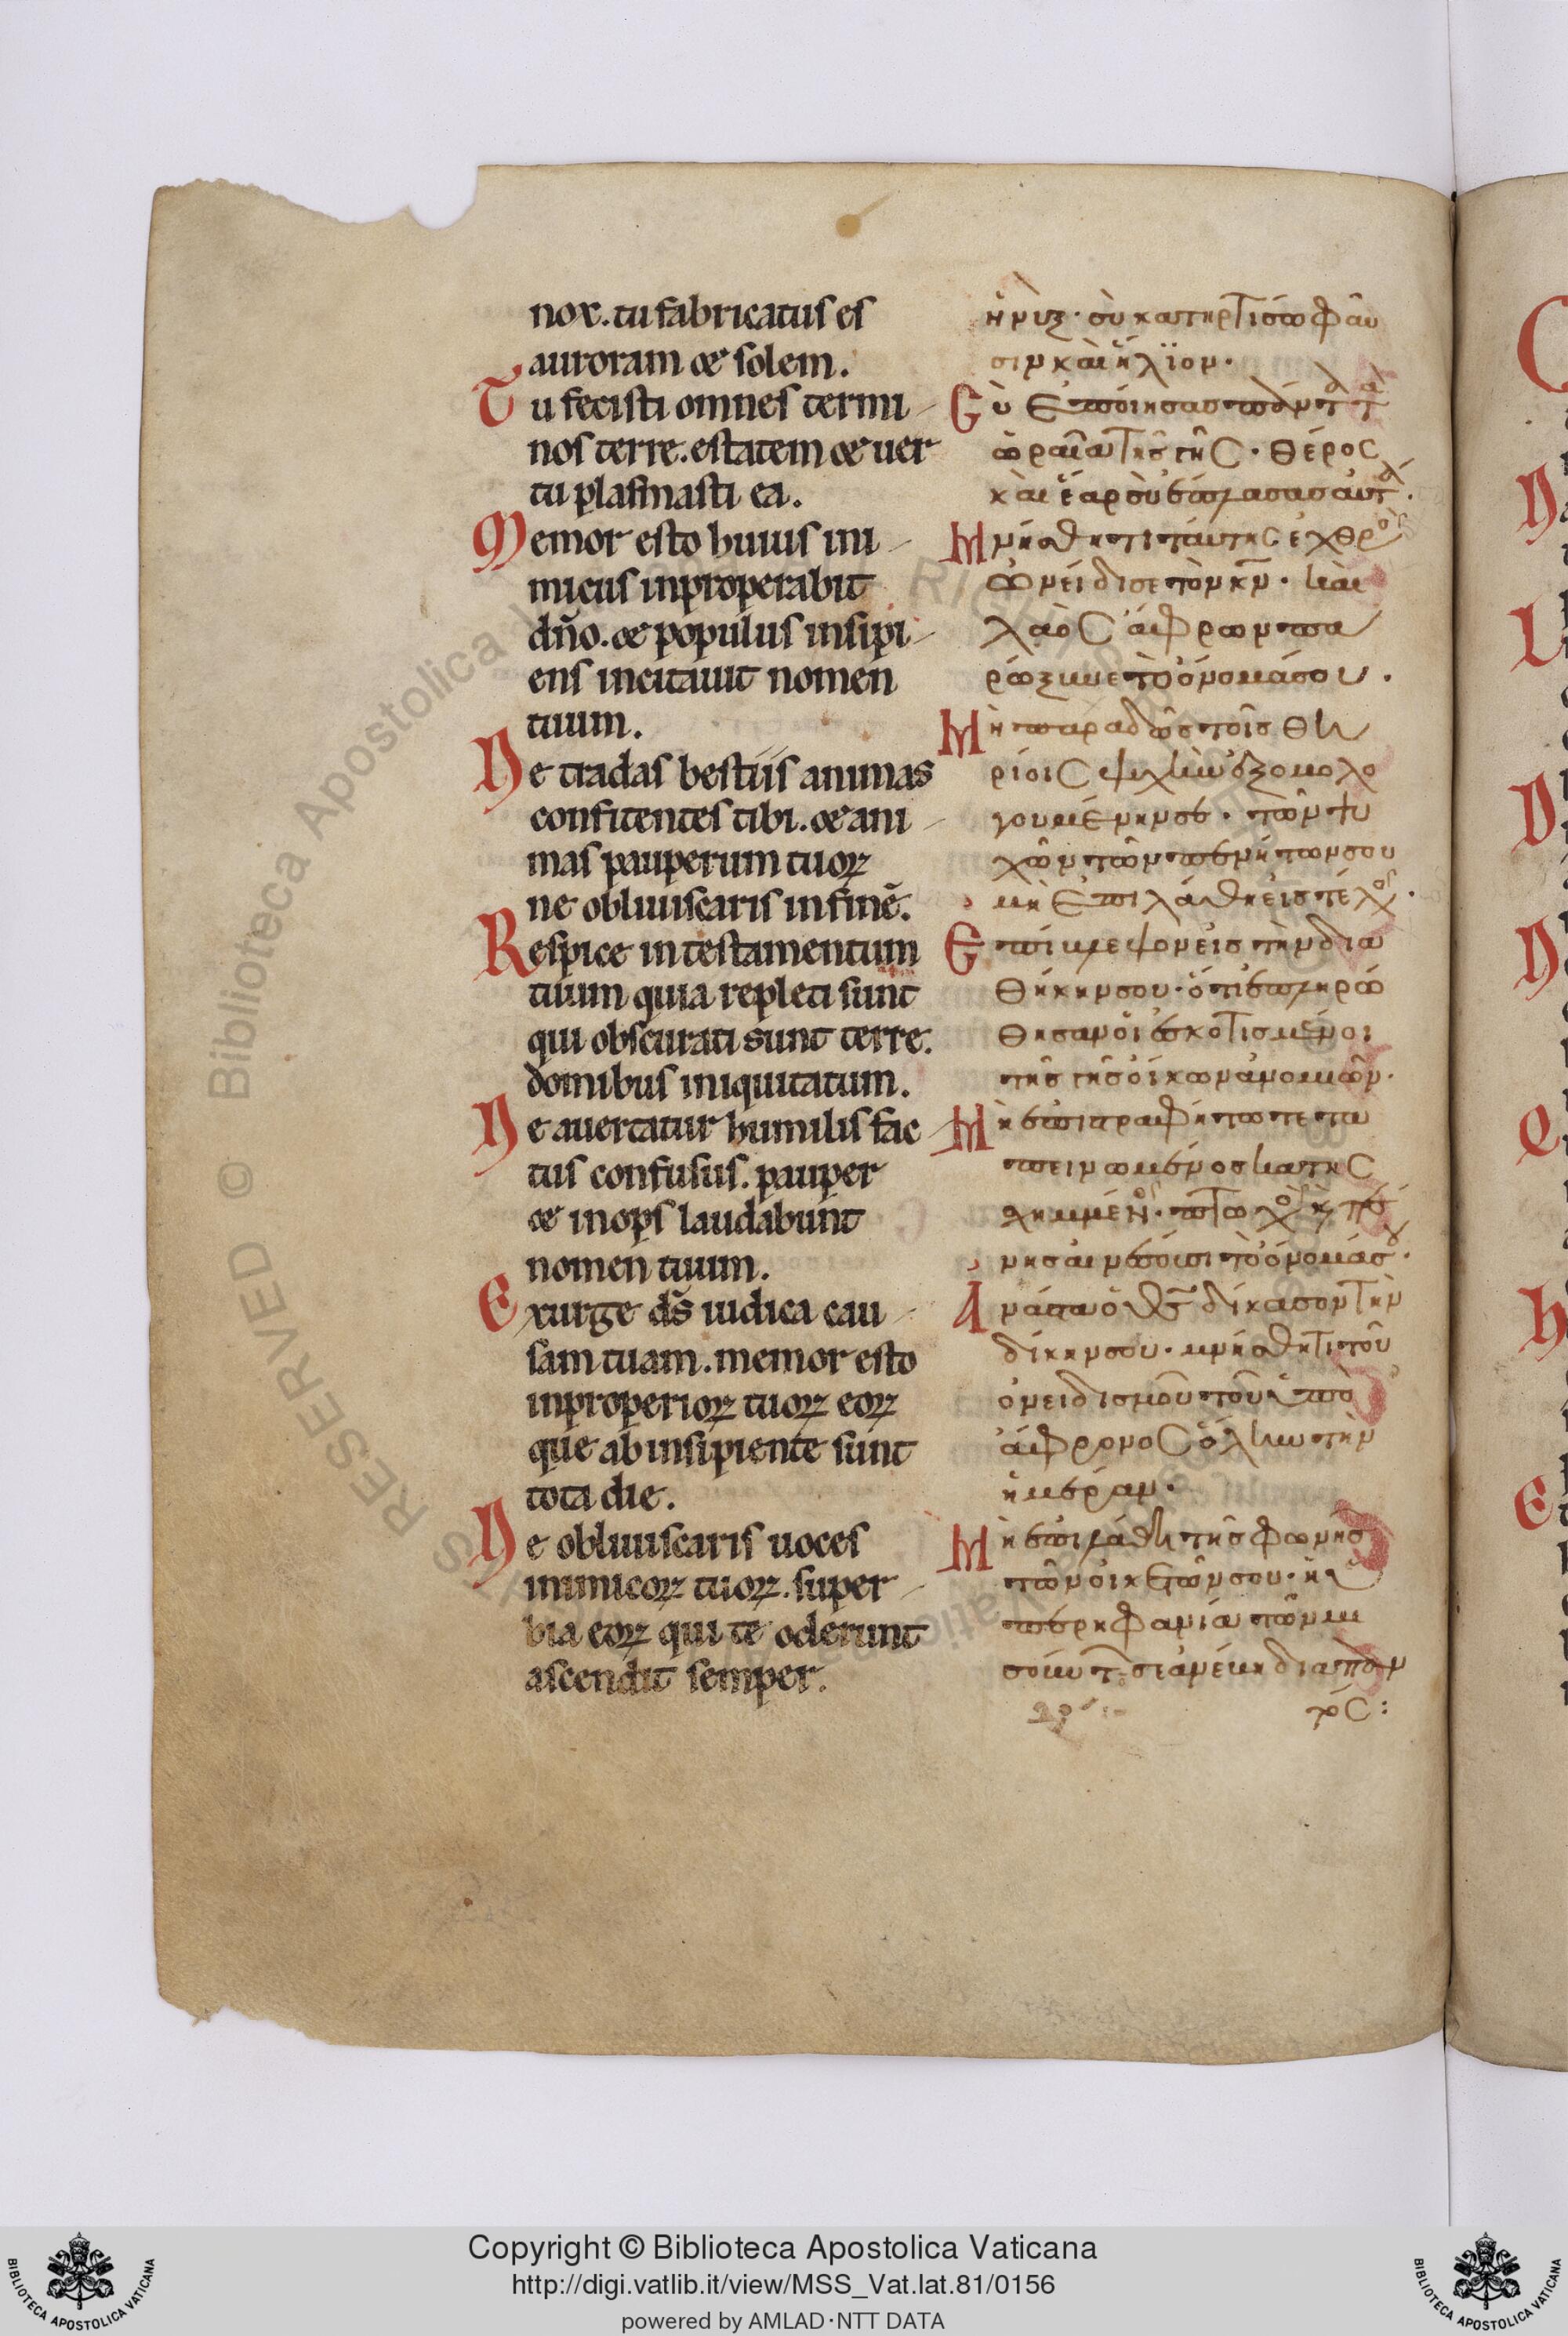 nox. tu fabricatus es
auroram & solem.
Tu fecisti omnes termi
nos terre. estatem & uer
tu plasmasti ea.
Memor esto huius ini
micus inproperabit
dño. & populus insipi
ens incitauit nomen
tuum.
Ne tradas bestiis animas
confitentes tibi. & ani
mas pauperum tuoꝝ
ne obliuiscaris in finē.
Respice in testamentum
tuum quia repleti sunt
qui obscurati sunt terre.
domibus iniquitatum.
Ne auertatur humilis fac
tus confusus. pauper
& inops laudabunt
nomen tuum.
Exurge dš iudica cau
sam tuam. memor esto
inproperioꝝ tuoꝝ eoꝝ
que ab insipiente sunt
tota die.
Ne obliuiscaris uoces
inimicoꝝ tuoꝝ. super
bia eoꝝ qui te oderunt
ascendit semper.
ἡ νὺξ· σὺ κατηρτίσω φαῦ
σιν καὶ ἥλϊον.
Σὺ ἐποίησας πάντα τὰ
ὡραῖα τῆς γῆς· θέρος
καὶ ἔαρ σὺ ἔπλασας αὐτά.
Μνήσθητι ταύτης ἐχθρὸς
ὠνείδισε τὸν κν̅. καὶ
λαὸς ἄφρων πα
ρώξυνε τὸ ὄνομά σου.
Μὴ παραδῶς τοῖς θη
ρίοις ψυχὴν ἐξομολο
γουμένην σοι. τῶν ψυ
χῶν τῶν πενήτων σου
μὴ ἐπιλάθῃ εἰς τέλος.
Ἐπίβλεψον εἰς τὴν δια
θήκην σου. ὅτι ἐπληρώ
θησαν οἱ ἐσκοτισμένοι
τῆς γῆς οἴκων ἀνομιῶν.
Μὴ ἀποστραφήτω τετα
πεινωμένος κατῃς
χημμένος. πτωχὸς καὶ πέ
νης αἰνέσουσι τὸ ὄνομά σου.
Ἀνάστα ὁ θς̅ δίκασον τὴν
δίκην σου. μνήσθητι τοῦ
ὀνειδισμοῦ τοῦ ὑπὸ
ἄφρονος ὅλην τὴν
ἡμέραν.
Μὴ ἐπιλάθῃ τῆς φωνῆς
τῶν οἰκετῶν σου. ἡ ὑ
περηφανία τῶν μι
σούντων σε ἀνέβη διαπαν
τός:
Copyright © Biblioteca Apostolica Vaticana
http://digi.vatlib.it/view/MSS_Vat.lat.81/0156
powered by AMLAD·NTT DATA
BIBLIOTECA APOSTOLICA VATICANA
BIBLIOTECA APOSTOLICA VATICANA